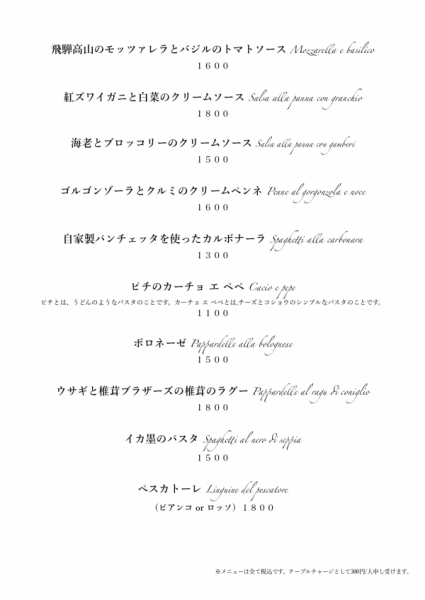 飛騨高山のモッツァレラとバジルのトマトソース Mozzarella e basilico
1600
紅ズワイガニと白菜のクリームソース Salsa alla panna con granchio
1800
海老とブロッコリーのクリームソース Salsa alla panna con gamberi
1500
ゴルゴンゾーラとクルミのクリームペンネ Penne al gorgonzola e noce
1600
自家製パンチェッタを使ったカルボナーラ Spaghetti alla carbonara
1300
ピチのカーチョ エ ペペ Cacio e pepe
ピチとは，うどんのようなパスタのことです。カーチョ エ ペペとは,チーズとコショウのシンプルなパスタのことです。
1100
ボロネーゼ Pappardelle alla bolognese
1500
ウサギと椎茸ブラザーズの椎茸のラグー Pappardelle al ragu di coniglio
1800
イカ墨のパスタ Spaghetti al nero di seppia
1500
ペスカトーレ Linguine del pescatore
（ビアンコ or ロッソ）1800
※メニューは全て税込です。テーブルチャージとして300円/人申し受けます。